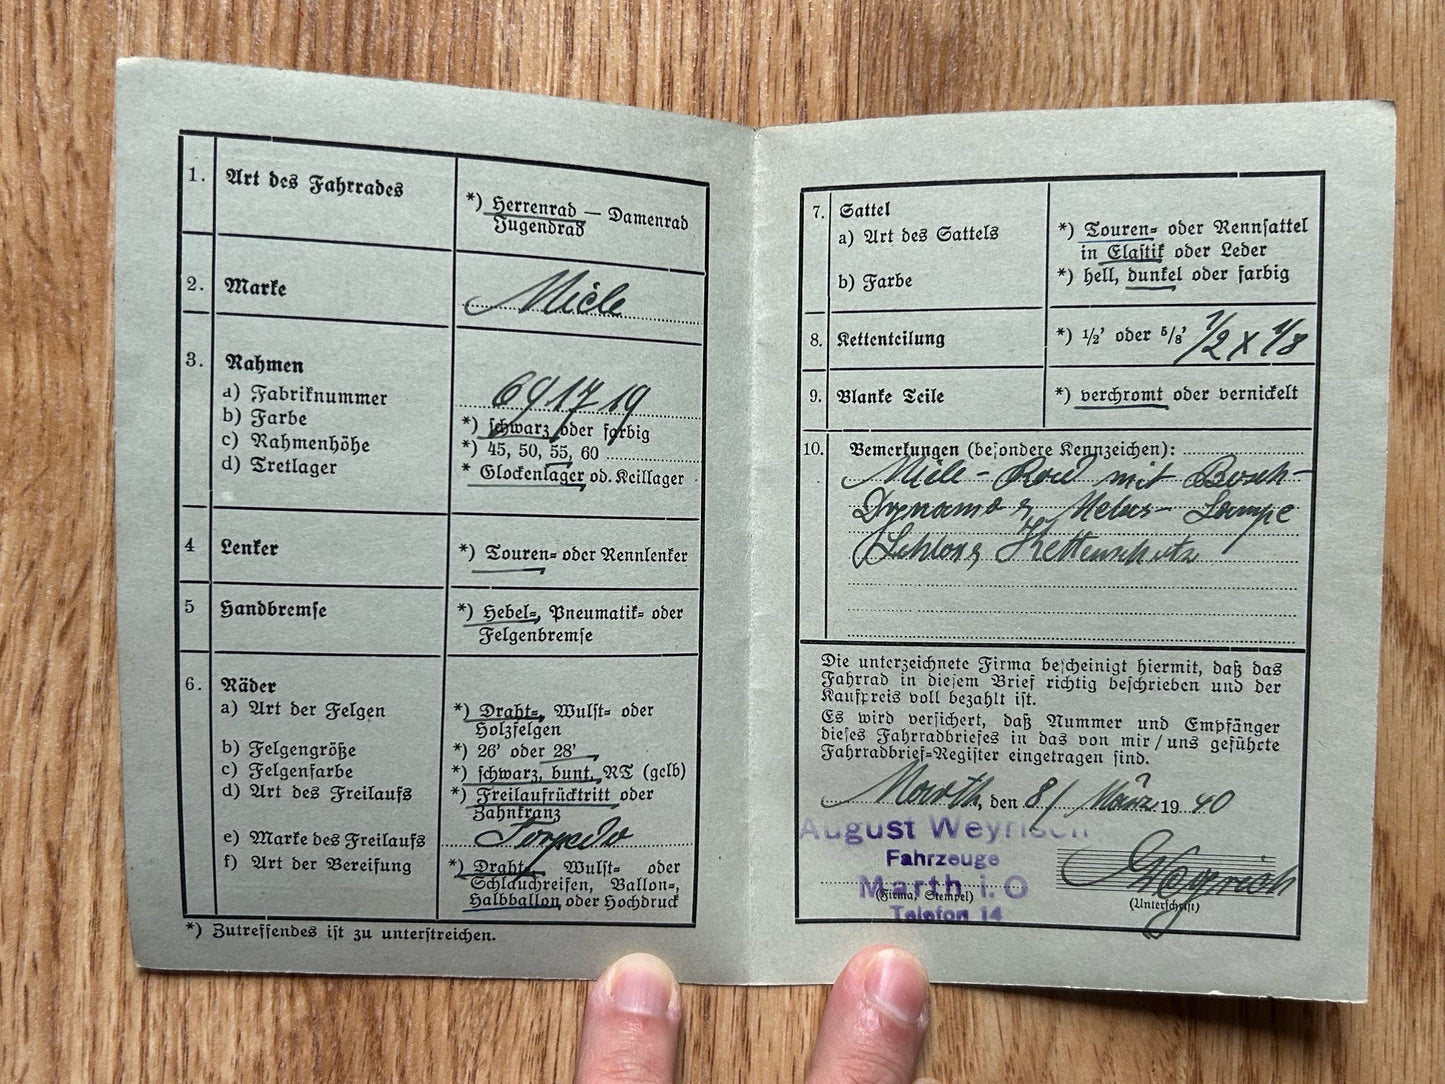 1. Art des Fahrrades
*) Herrenrad — Damenrad
Jugendrad
2. Marke
Miele
3. Rahmen
a) Fabriknummer
691719
b) Farbe
*) schwarz oder farbig
c) Rahmenhöhe
*) 45, 50, 55, 60
d) Tretlager
* Glockenlager od. Keillager
4 Lenker
*) Touren= oder Rennlenker
5 Handbremse
*) Hebel=, Pneumatik= oder
Felgenbremse
6. Räder
a) Art der Felgen
*) Draht=, Wulst= oder
Holzfelgen
b) Felgengröße
*) 26' oder 28'
c) Felgenfarbe
*) schwarz, bunt, NT (gelb)
d) Art des Freilaufs
*) Freilaufrücktritt oder
Zahnkranz
e) Marke des Freilaufs
Torpedo
f) Art der Bereifung
*) Draht=, Wulst= oder
Schlauchreifen, Ballon=,
Halbballon oder Hochdruck
*) Zutreffendes ist zu unterstreichen.
7. Sattel
a) Art des Sattels
*) Touren= oder Rennsattel
in Elastik oder Leder
b) Farbe
*) hell, dunkel oder farbig
8. Kettenteilung
*) 1/2' oder 5/8' 1/2 x 1/8
9. Blanke Teile
*) verchromt oder vernickelt
10. Bemerkungen (besondere Kennzeichen):
Miele - Rad mit Bosch-
Dynamo & Melas- Lampe
Schloss, Kettenschutz
Die unterzeichnete Firma bescheinigt hiermit, daß das
Fahrrad in diesem Brief richtig beschrieben und der
Kaufpreis voll bezahlt ist.
Es wird versichert, daß Nummer und Empfänger
dieses Fahrradbriefes in das von mir / uns geführte
Fahrradbrief=Register eingetragen sind.
Marth, den 8/ März 19 40
August Weyrisch
Fahrzeuge
Marth i. O
(Firma, Stempel)
Telefon 14
Weyrich
(Unterschrift)